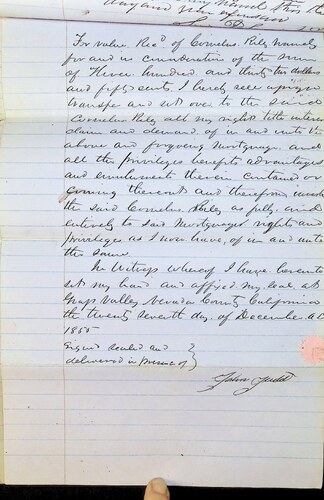 day and year
For value Recd of Cornelius Riley namely
for and in consideration of the sum
of Three hundred and thirty two dollars
and fifty cents I hereby sell assign
transfer and set over to the said
Cornelius Riley all my right title interest
claim and demand of in and unto the
above and forgoing Mortgage and
all the privileges benefits advantages
and emoluments therein contained or
coming thereout and therefrom
the said Cornelius Riley as fully and
entirely to said Mortgages rights and
privileges as I now have, of in and unto
the same
In Witness whereof I have hereunto
set my hand and affixed my seal at
Grass Valley Nevada County California
the twenty seventh day of December A.D.
1855
Signed Sealed and
delivered in presence of
John Judd